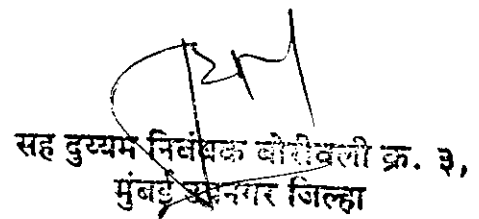 सह दुय्यम निबंधक बोरीवली क्र. ३,
मुंबई उपनगर जिल्हा